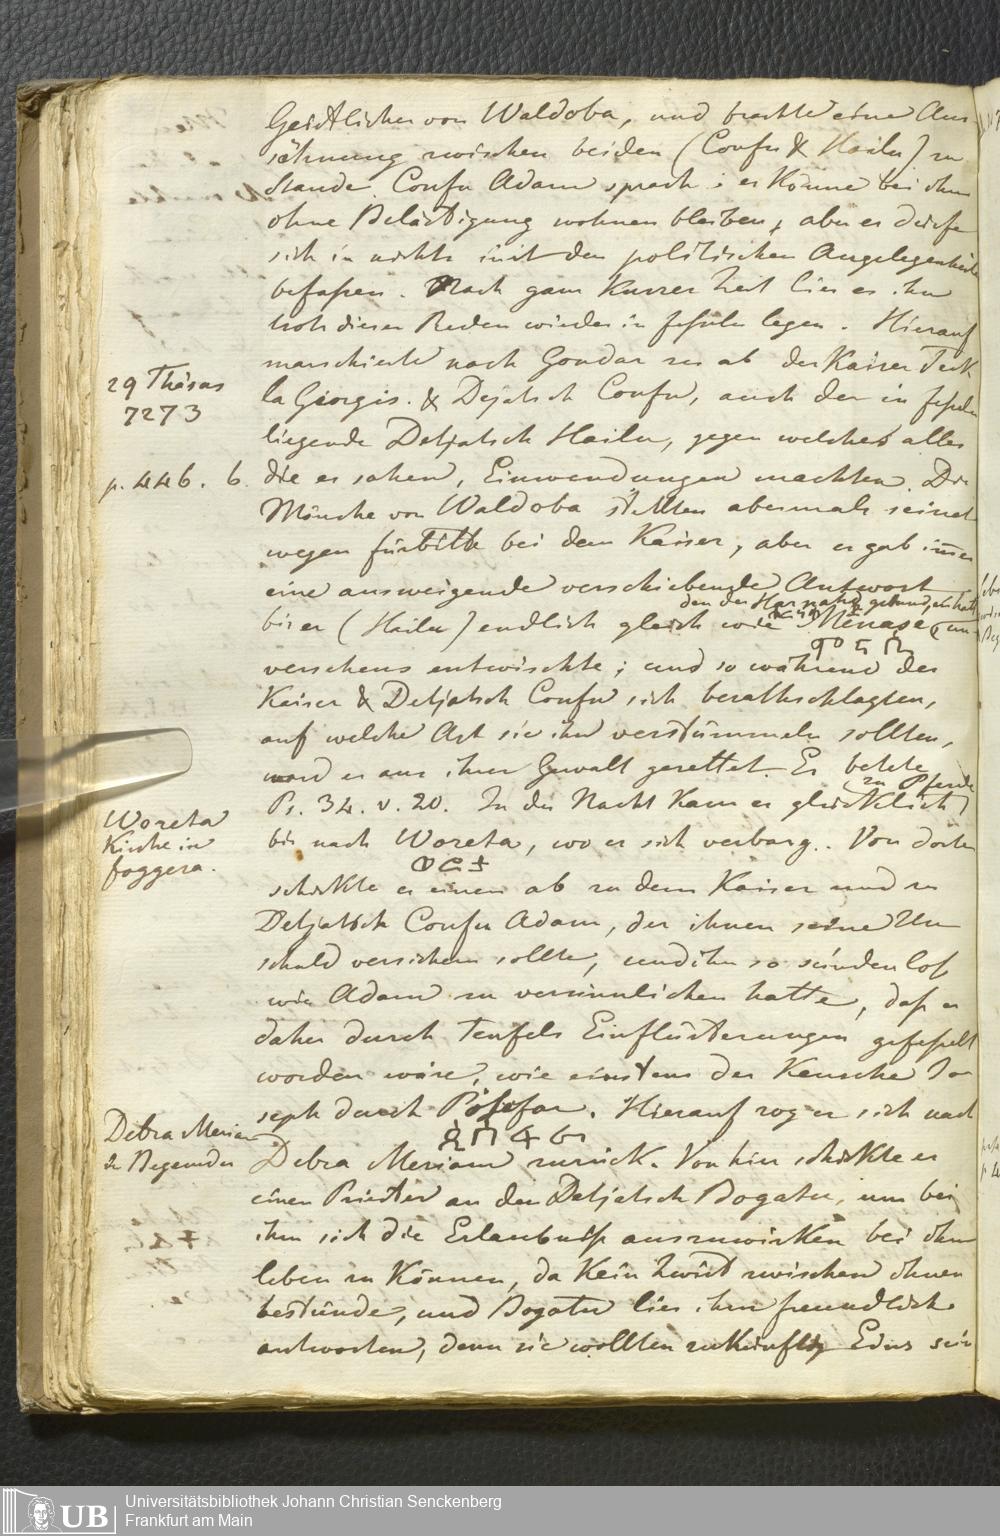 Geistlicher von Waldoba, und brachte eine Aus
söhnung zwischen beiden (Confu & Hailu) zu
Stande. Confu Adam sprach: er Könne bei ihm
ohne Belästigung wohnen bleiben, aber er dürfe
sich in nichts mit den politischen Angelegenheiten
befaßen. Nach ganz Kurzer Zeit lies er ihn
troz dieser Reden wieder in feßeln legen. Hierauf
marschierte nach Gondar zu ab der Kaiser Teck
29 Thäsas
7273
la Giorgis. & Dejatsch Confu, auch der in feßeln
liegende Detjatsch Hailu, gegen welches alles
p. 446. b.
die es sahen, Einwendungen machten. Die
Mönche von Waldoba stellten abermals seinet
wegen fürbitte bei dem Kaiser, aber er gab immer
eine ausweigende verschiebende Antwort
den der Harnahsh gebund.
bis er (Hailu) endlich gleich wie Menase un
መናሴ
versehens entwischte; und so während der
Kaiser & Detjatsch Confu sich berathschlagten,
auf welche Art sie ihn verstümmeln sollten,
ward er aus ihrer Gewalt gerettet. Er betete
zu Pferde
Ps. 34. v. 20. In der Nacht Kam er glücklich
Woreta
Kirche in
foggera.
bis nach Woreta, wo er sich verbarg. Von dort
ወረታ
schikte er einen ab zu dem Kaiser und zu
Detjatsch Confu Adam, der ihnen seine Un
schuld versichern sollte, und ihn so sündenlos
wie Adam zu versinnlichen hatte, daß er
daher durch Teufels Einflüsterungen gefeßelt
worden wäre, wie einstens der Keusche Jo
seph durch Pötefar. Hierauf zog er sich nach
Debra Meriam
in Begemder
Debra Meriam zurück. Von hier schikte er
einen Priester an den Detjatsch Bogatu, um bei
ihm sich die Erlaubniß auszuwirken bei ihm
leben zu Können, da Kein Zwist zwischen ihnen
bestünde, und Bogatu lies ihm freundlich
antworten, denn sie wollten zukünftig Eins sein
UB
Universitätsbibliothek Johann Christian Senckenberg
Frankfurt am Main